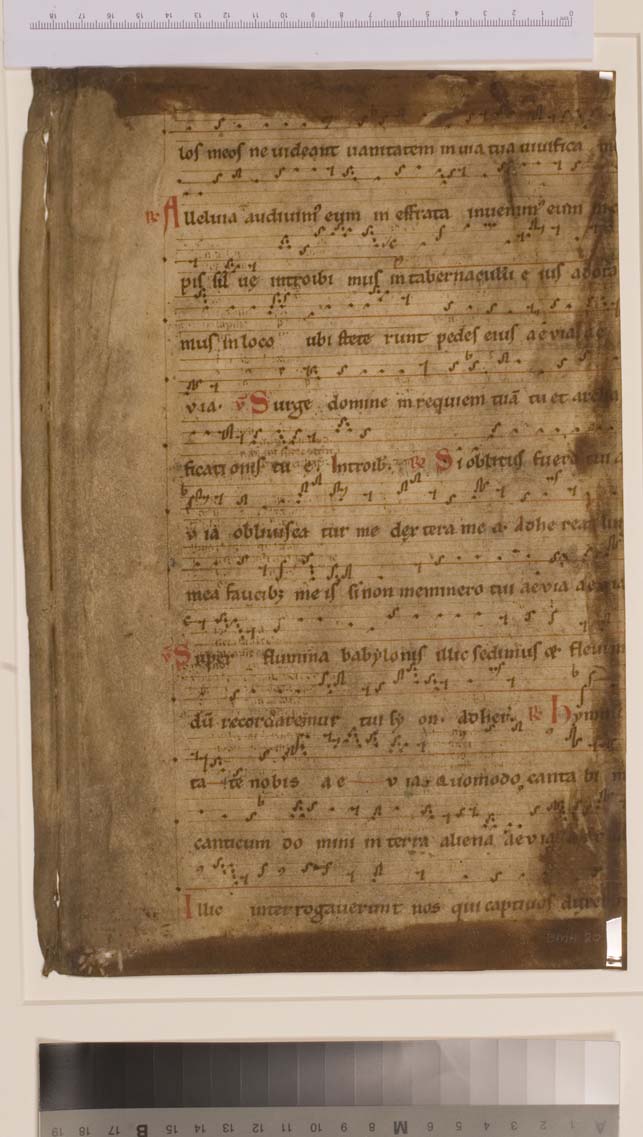 los meos ne uideant uanitatem in uia tua uiuifica me
℟ Alleluia audiuim' eum in effrata inuenim' eum
pis siluę introibi mus in tabernaculū e ius adora
mus in loco ubi stete runt pedes eius aeuia ae
v ia. ℣ Surge domine in requiem tuā tu et archa
ficati onis tu ę. Introib. ℟ Si oblitus fuero tui a
v ia obliuisca tur me dextera me a. adhe reat lin
mea faucib; me is si non meminero tui aeuia aeuia
℣ Super flumina babylonis illic sedimus & fleuim
dū recordaremur tui sy on. adher. ℟ Hymnū
ta te nobis a e v ia. Quomodo canta bi m
canticum do mini in terra aliena aeuia
Illic interrogauerunt nos qui captiuos duxer